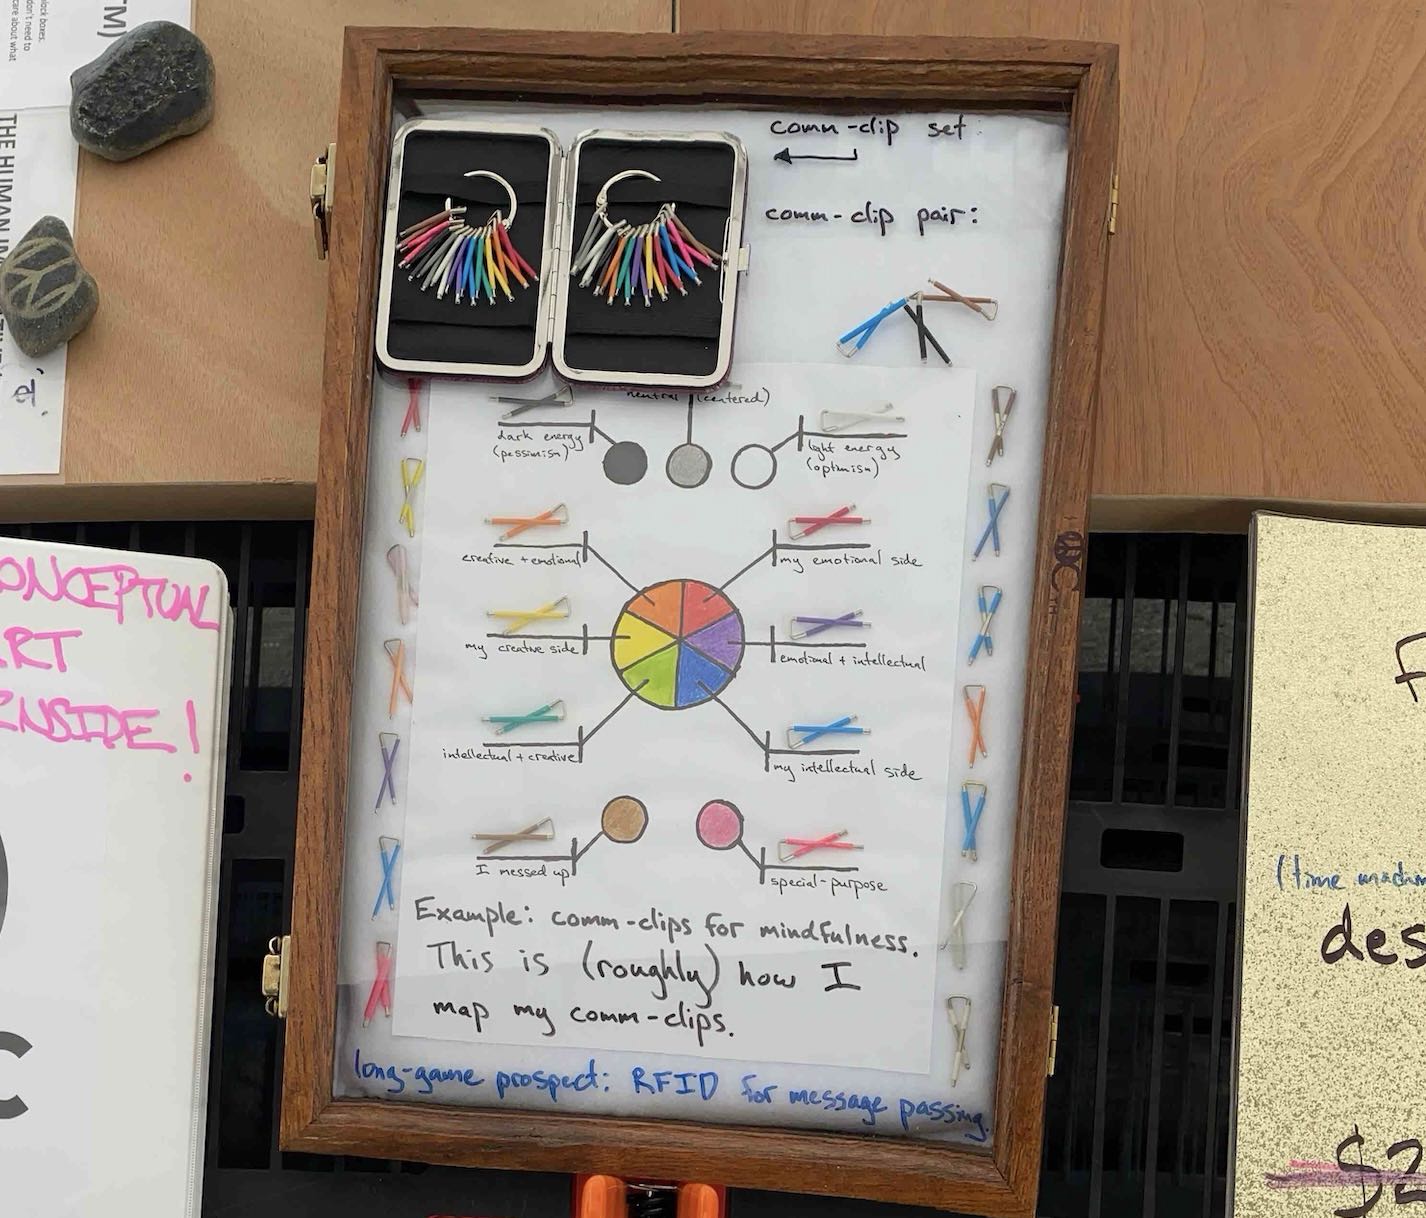 TM)
lock boxes.
don't need to
care about what
THE HUMAN
el.
comm-clip set:
comm-clip pair:
neutral (centered)
dark energy
(pessimism)
light energy
(optimism)
creative + emotional
my emotional side
my creative side
emotional + intellectual
intellectual + creative
my intellectual side
I messed up
special-purpose
Example: comm-clips for mindfulness.
This is (roughly) how I
map my comm-clips.
long-game prospect: RFID for message passing.
CONCEPTUAL
ART
INSIDE!
C
F
(time
des
$2